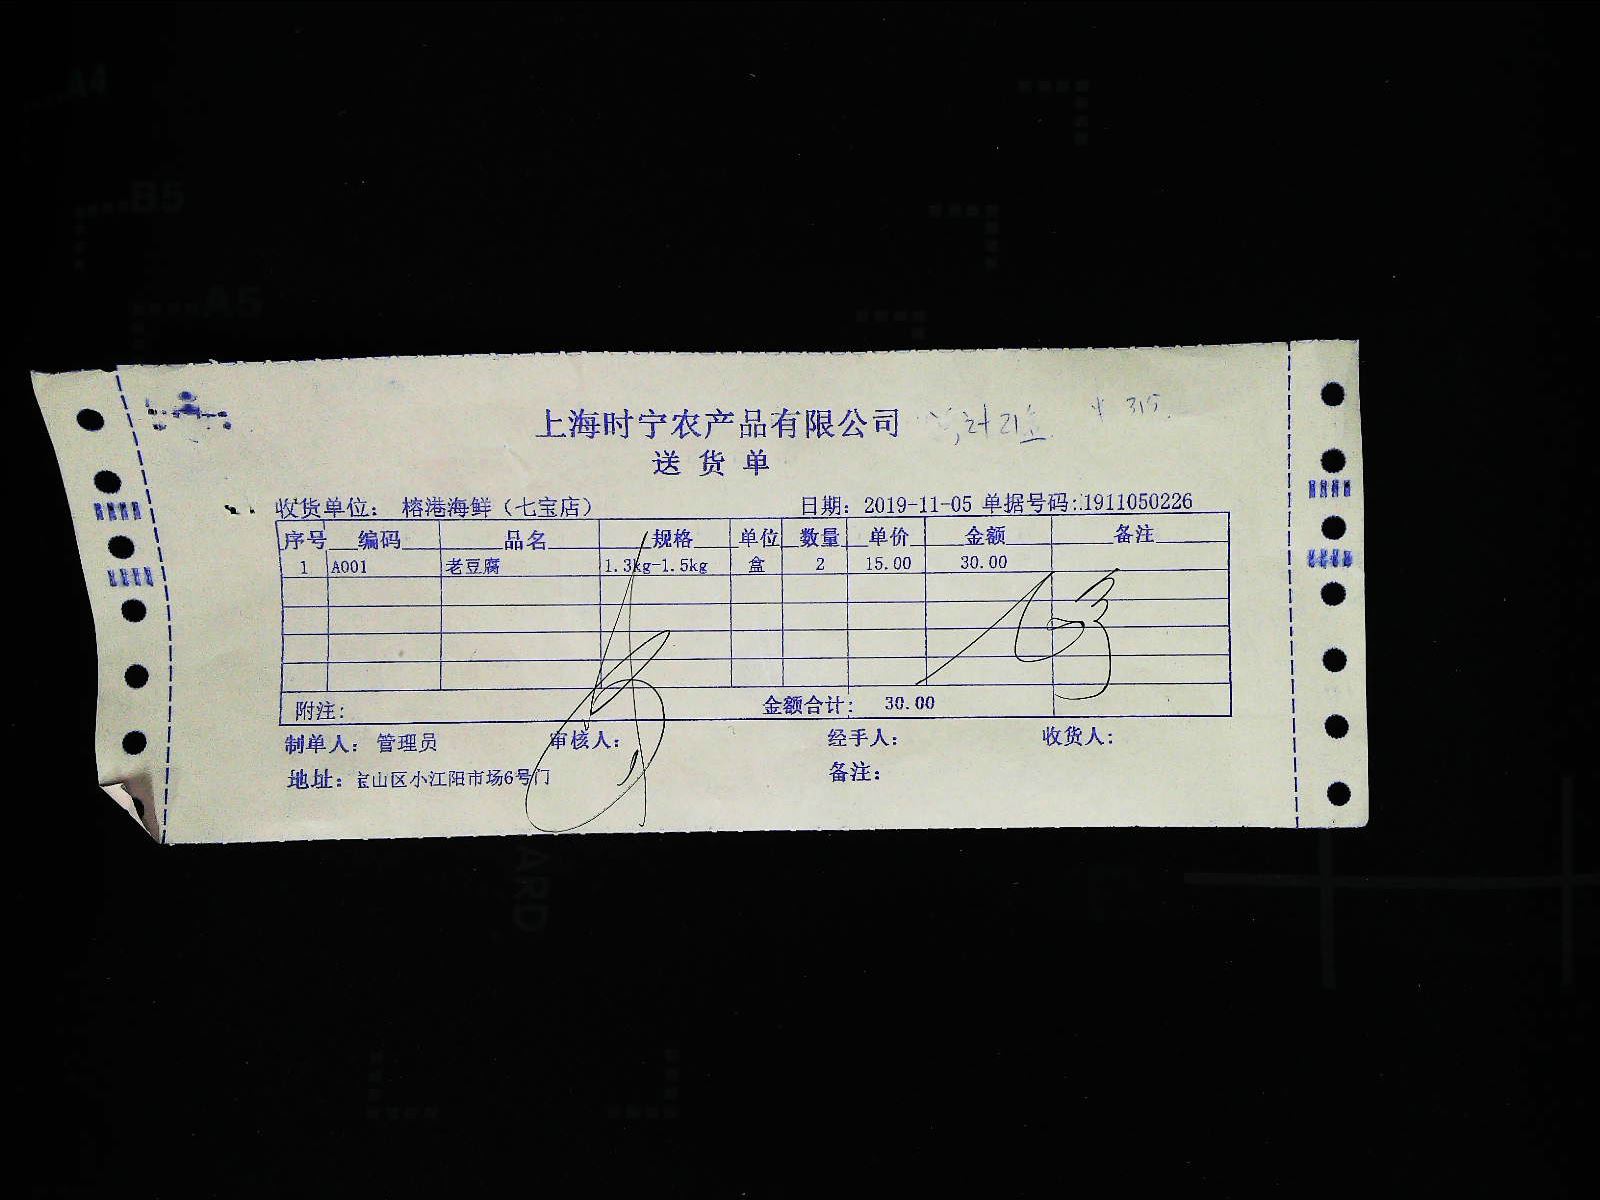 A4
B5
A5
上海时宁农产品有限公司 计21 ¥315.
送货单
收货单位： 榕港海鲜（七宝店） 日期：2019-11-05 单据号码：1911050226
序号 编码 品名 规格 单位 数量 单价 金额 备注
1 A001 老豆腐 1.3kg-1.5kg 盒 2 15.00 30.00
附注： 金额合计： 30.00
制单人： 管理员 审核人： 经手人： 收货人：
地址：宝山区小江阳市场6号门 备注：
ARD